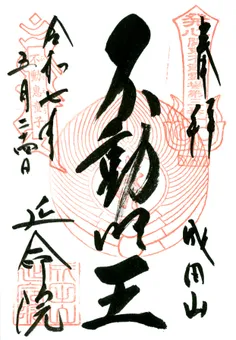 奉拝
成田山
不動明王
令和七年
五月二十四日
延命院